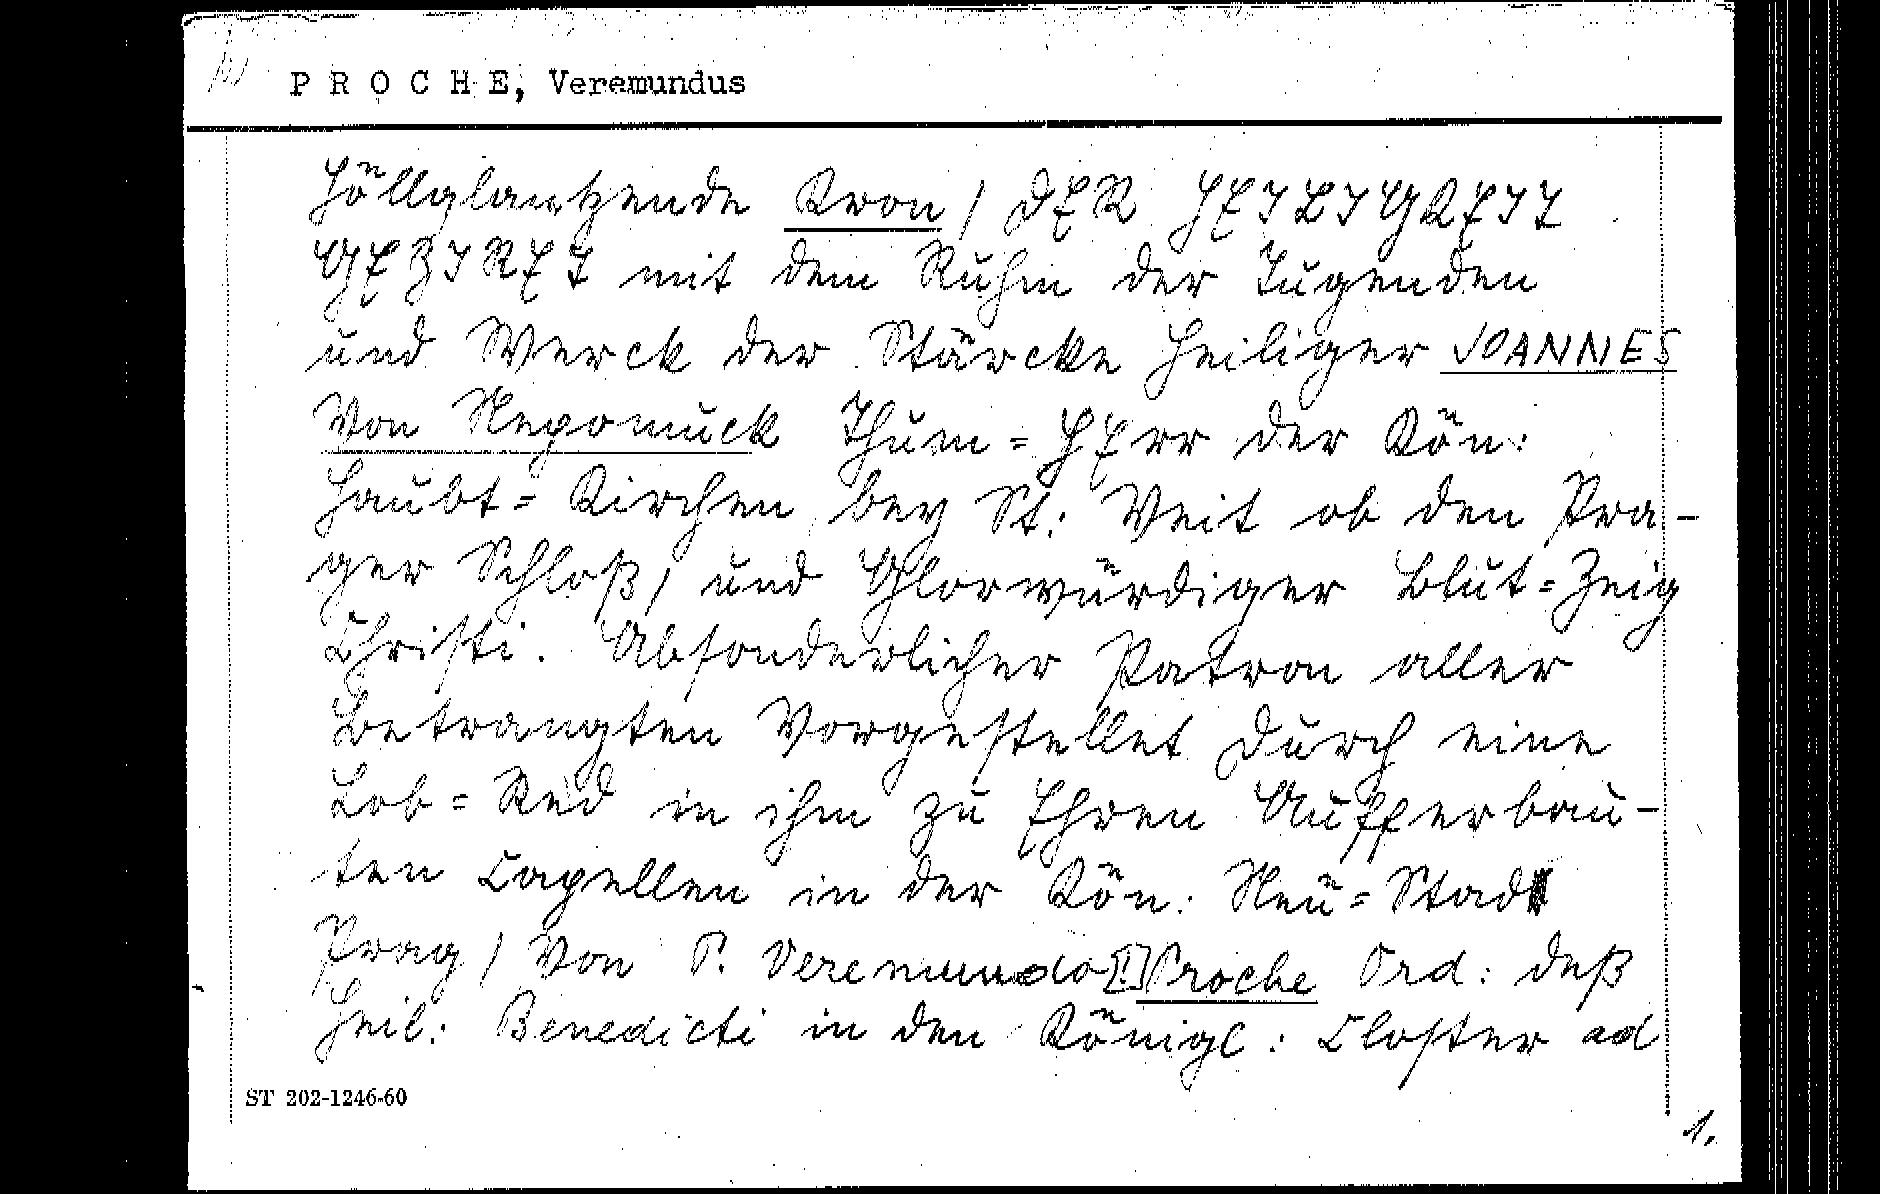 PROCHE, Veremundus
Höllglantzende Kron / DER HEILIGKEIT
GEZIRET mit dem Ruhm der Tugenden
und Werck der Stärcke Heiliger JOANNES
Von Nepomuck Thum=HErr der Kön:
Haubt=Kirchen bey St: Veit ob den Pra-
ger Schloß, und Glorwürdiger Blut=Zeig
Christi. Absonderlicher Patron aller
Betrangten Vorgestellet Durch eine
Lob=Red in ihm zu Ehren Aufferbau-
ten Capellen in der Kön: Neü=Stadt
Prag / Von P. Veremundo [!] Proche Ord: deß
Heil: Benedicti in den Königl: Closter ad
ST 202-1246-60
1.